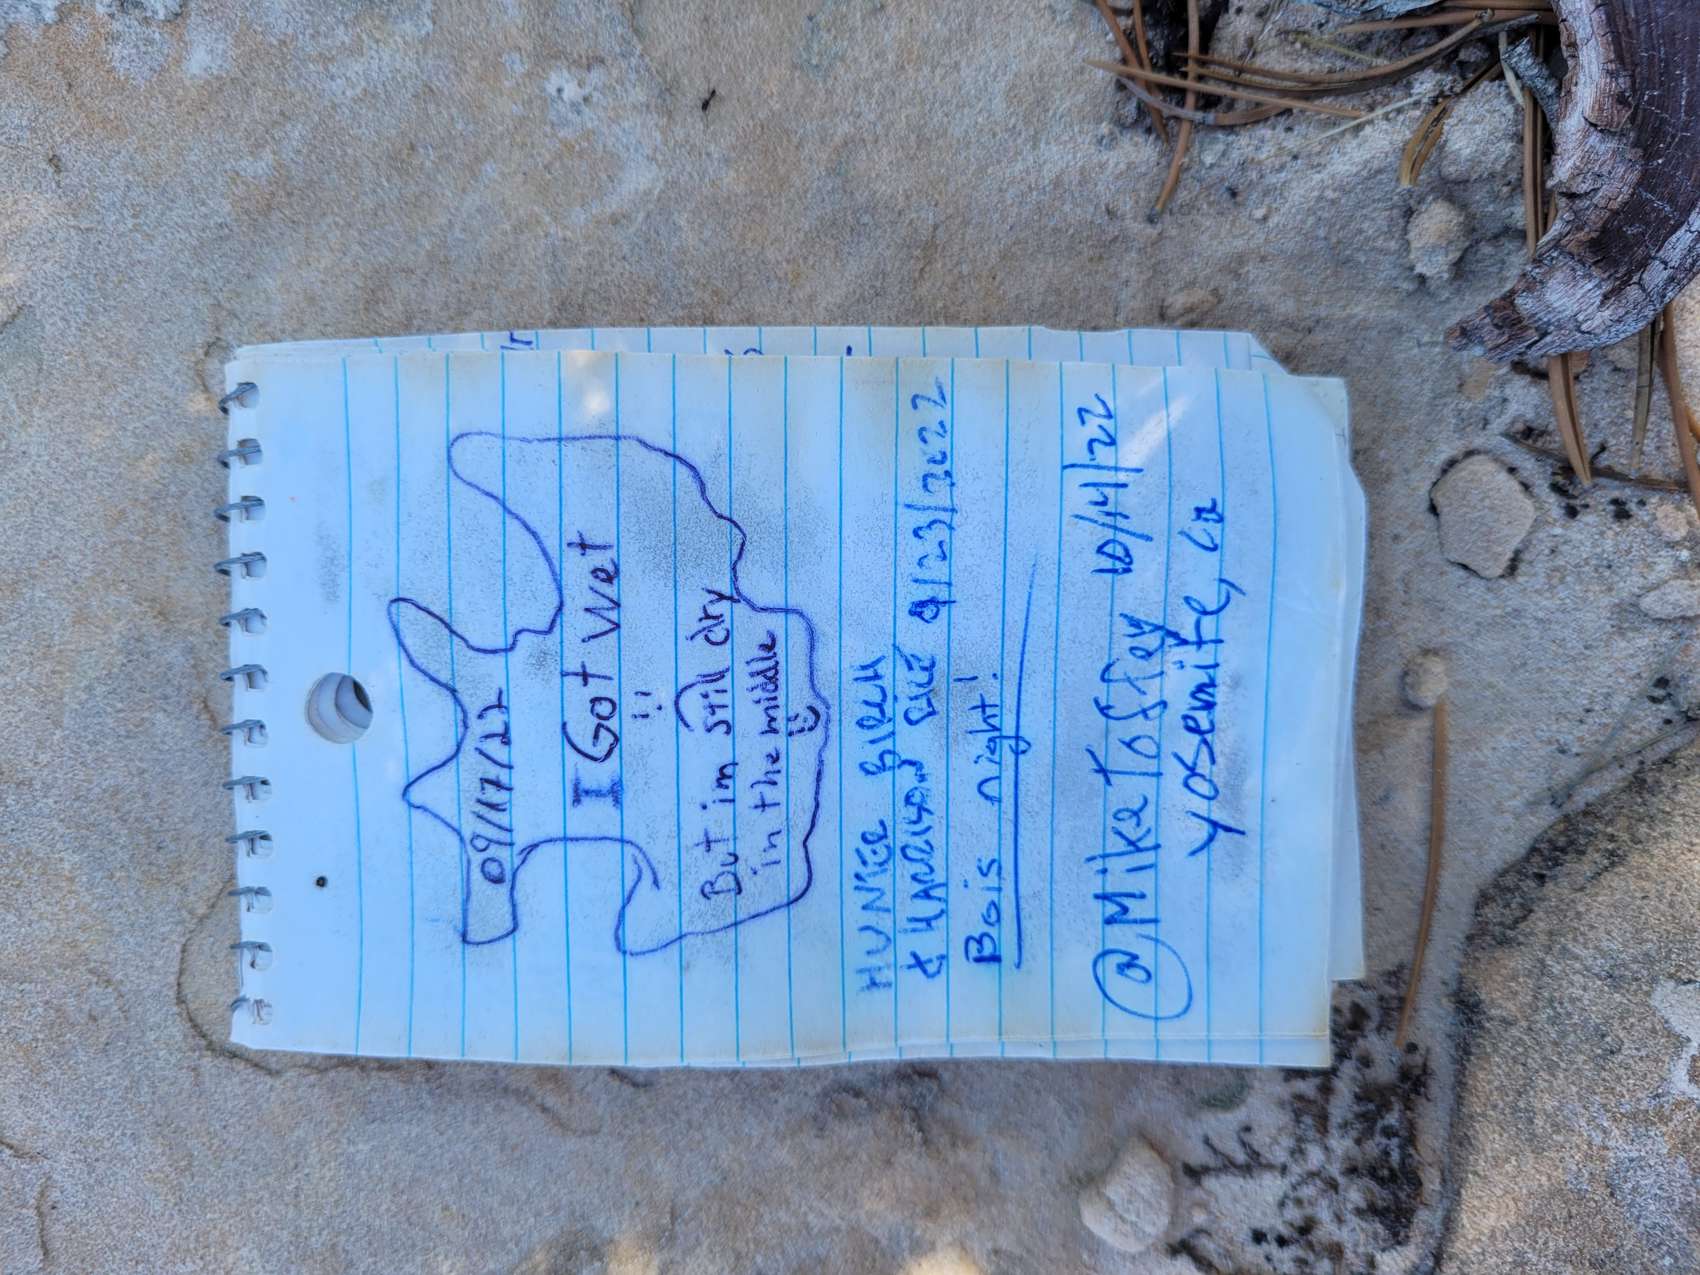 09/17/22
I Got wet
:(
But im still dry
in the middle
:)
HUNTER BIRCH
& HARRISON RICE 9/23/2022
Bois night!
@MikeToffey 10/14/22
Yosemite, Ca